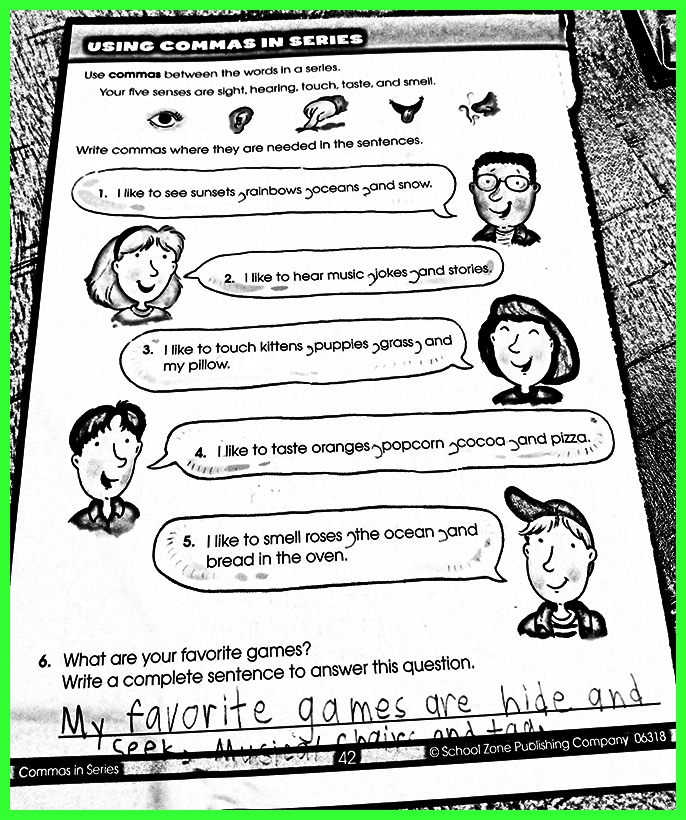 USING COMMAS IN SERIES
Use commas between the words in a series.
Your five senses are sight, hearing, touch, taste, and smell.
Write commas where they are needed in the sentences.
1. I like to see sunsets ,rainbows ,oceans ,and snow.
2. I like to hear music ,jokes ,and stories.
3. I like to touch kittens ,puppies ,grass, and
my pillow.
4. I like to taste oranges ,popcorn ,cocoa ,and pizza.
5. I like to smell roses ,the ocean ,and
bread in the oven.
6. What are your favorite games?
Write a complete sentence to answer this question.
My favorite games are hide and
seek, Musical chairs and tag.
Commas in Series
42
© School Zone Publishing Company 06318